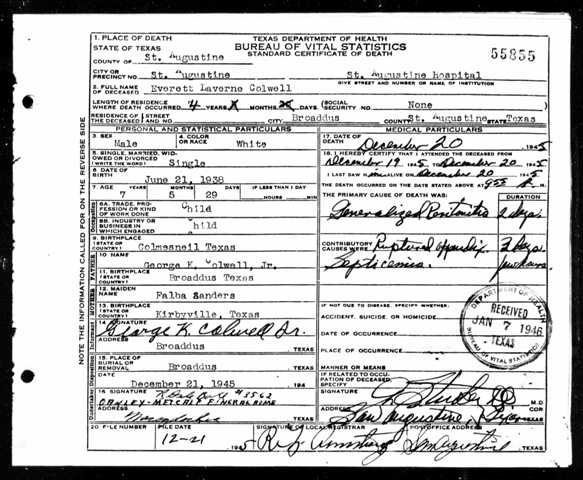 1. PLACE OF DEATH
STATE OF TEXAS
TEXAS DEPARTMENT OF HEALTH
BUREAU OF VITAL STATISTICS
STANDARD CERTIFICATE OF DEATH
55855
COUNTY OF St. Augustine
CITY OR PRECINCT NO. St. Augustine St. Augustine Hospital
GIVE STREET AND NUMBER OR NAME OF INSTITUTION
2. FULL NAME OF DECEASED Everett Laverne Colwell
LENGTH OF RESIDENCE WHERE DEATH OCCURRED 4 YEARS X MONTHS X DAYS (SOCIAL SECURITY NO. None
RESIDENCE OF THE DECEASED (STREET AND NO. Broaddus COUNTY St. Augustine STATE Texas
PERSONAL AND STATISTICAL PARTICULARS
3. SEX Male
4. COLOR OR RACE White
5. SINGLE, MARRIED, WIDOWED OR DIVORCED (WRITE THE WORD) Single
6. DATE OF BIRTH June 21, 1938
7. AGE YEARS MONTHS DAYS IF LESS THAN 1 DAY
7 5 29 HOURS MIN
8A. TRADE, PROFESSION OR KIND OF WORK DONE Child
8B. INDUSTRY OR BUSINESS IN WHICH ENGAGED Child
9. BIRTHPLACE (STATE OR COUNTRY) Colmesneil Texas
10. NAME George K. Colwell, Jr.
11. BIRTHPLACE (STATE OR COUNTRY) Broaddus Texas
12. MAIDEN NAME Falba Sanders
13. BIRTHPLACE (STATE OR COUNTRY) Kirbyville, Texas
14. SIGNATURE George K Colwell Jr.
ADDRESS Broaddus TEXAS
15. PLACE OF BURIAL OR REMOVAL Broaddus TEXAS
December 21, 1945 194
16 SIGNATURE #3562
FUNERAL HOME
ADDRESS TEXAS
20 FILE NUMBER FILE DATE
12-21 1945
MEDICAL PARTICULARS
17. DATE OF DEATH December 20 1945
18. I HEREBY CERTIFY THAT I ATTENDED THE DECEASED FROM
December 19 1945 TO December 20 1945
I LAST SAW him ALIVE ON December 20 1945
THE DEATH OCCURRED ON THE DATE STATED ABOVE AT 9:55 M.
THE PRIMARY CAUSE OF DEATH WAS: DURATION
Generalized Peritonitis 2 days.
CONTRIBUTORY CAUSES WERE Ruptured appendix. 3 days
Septicemia.
IF NOT DUE TO DISEASE, SPECIFY WHETHER:
ACCIDENT, SUICIDE OR HOMICIDE
DATE OF OCCURRENCE
PLACE OF OCCURRENCE
MANNER OR MEANS
IF RELATED TO OCCUPATION OF DECEASED, SPECIFY
SIGNATURE M.D.
ADDRESS San Augustine, Texas
SIGNATURE OF LOCAL REGISTRAR POSTOFFICE ADDRESS
San Augustine TEXAS
DEPARTMENT OF HEALTH
RECEIVED
JAN 7 1946
TEXAS
BUREAU OF VITAL STATISTICS
NOTE THE INFORMATION CALLED FOR ON THE REVERSE SIDE
Occupation
FATHER
MOTHER
Informant